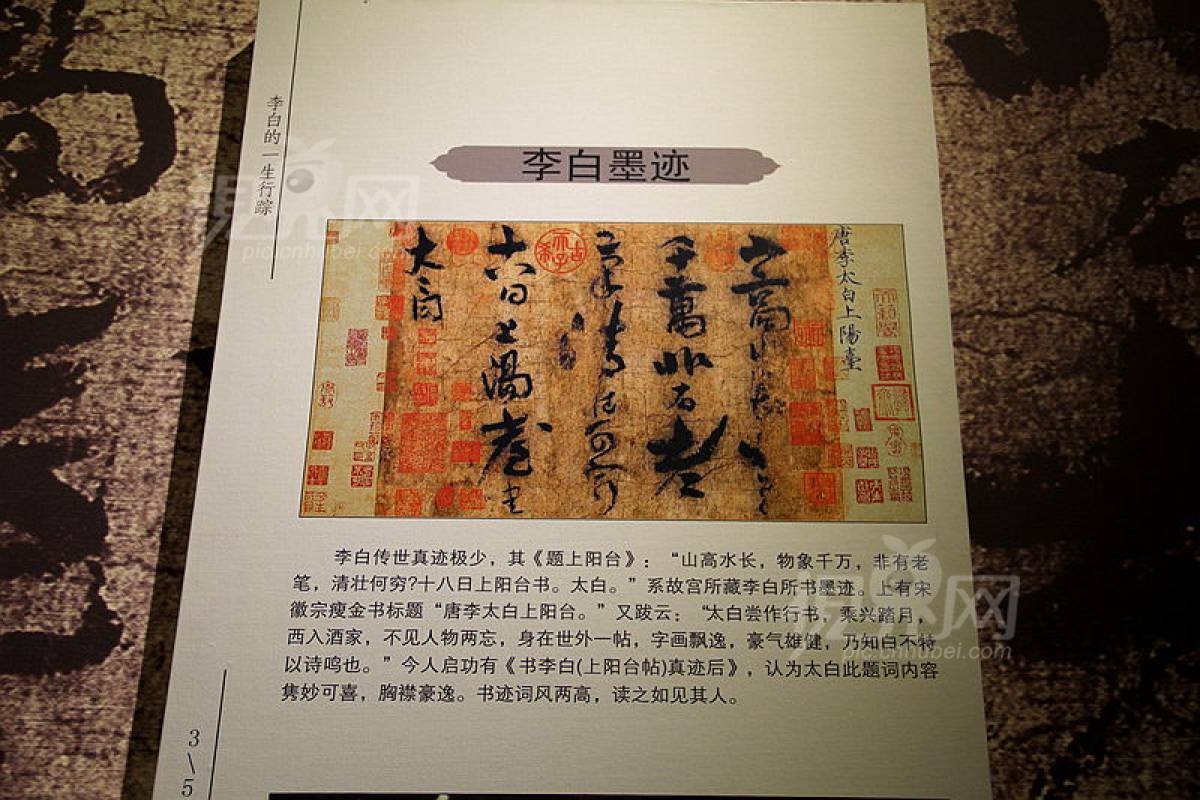 李白的一生行踪
李白墨迹
唐李太白上陽臺
山高水長物象
千萬非有老
筆清壯何窮
十八日上陽臺書
太白
李白传世真迹极少，其《题上阳台》：“山高水长，物象千万，非有老
笔，清壮何穷?十八日上阳台书。太白。”系故宫所藏李白所书墨迹。上有宋
徽宗瘦金书标题“唐李太白上阳台。”又跋云：“太白尝作行书，乘兴踏月，
西入酒家，不见人物两忘，身在世外一帖，字画飘逸，豪气雄健，乃知白不特
以诗鸣也。”今人启功有《书李白(上阳台帖)真迹后》，认为太白此题词内容
隽妙可喜，胸襟豪逸。书迹词风两高，读之如见其人。
3\5
pic.cnhubei.com
pic.cnhubei.com